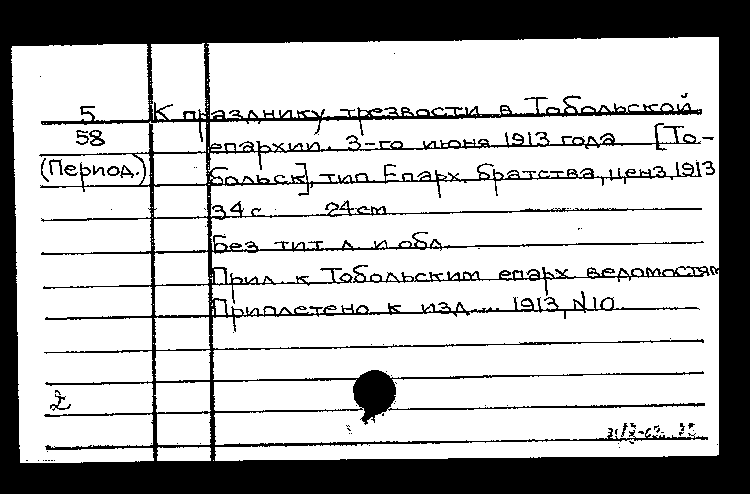 5 К празднику трезвости в Тобольской
58 епархии. 3-го июня 1913 года. [То-
(Период.) больск], тип. Епарх. братства, ценз. 1913
34 с. 24 cm.
Без тит. л. и обл.
Прил. к Тобольским епарх. ведомостям
Приплетено к изд.... 1913, N10.
2